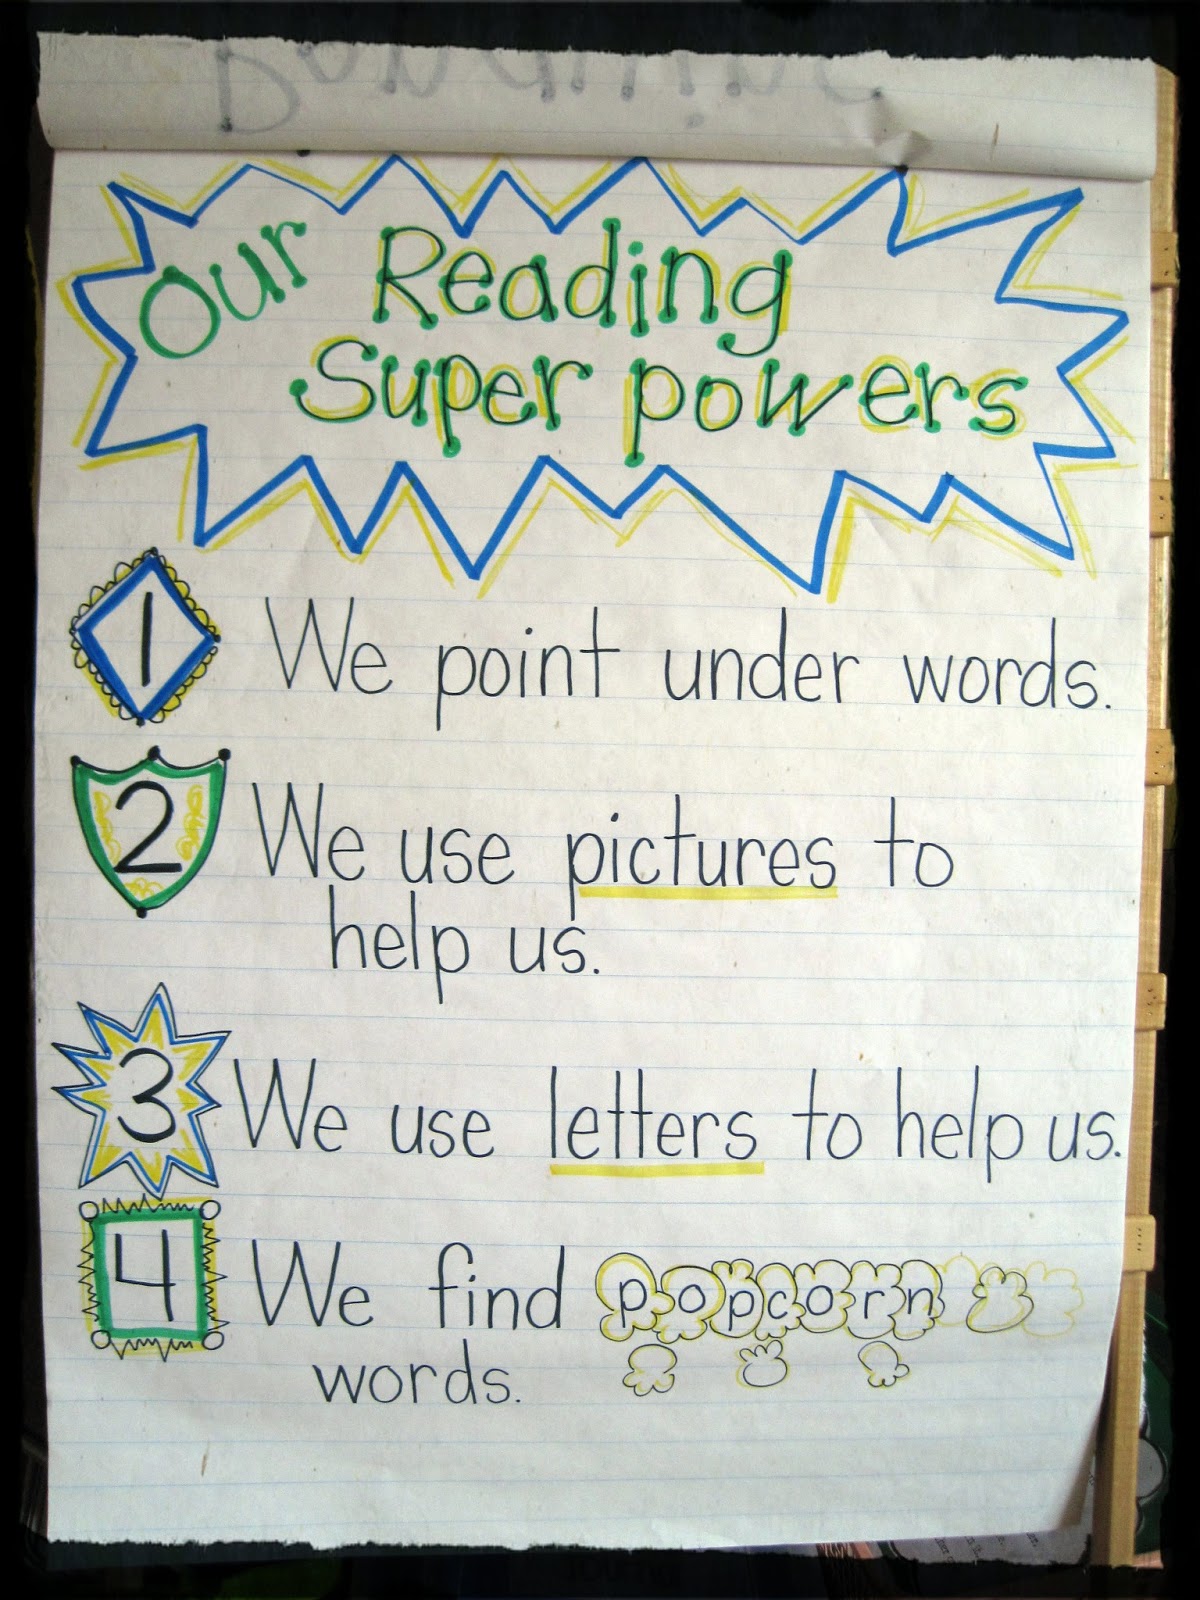 Our Reading
Super powers
1 We point under words.
2 We use pictures to
help us.
3 We use letters to help us.
4 We find popcorn
words.